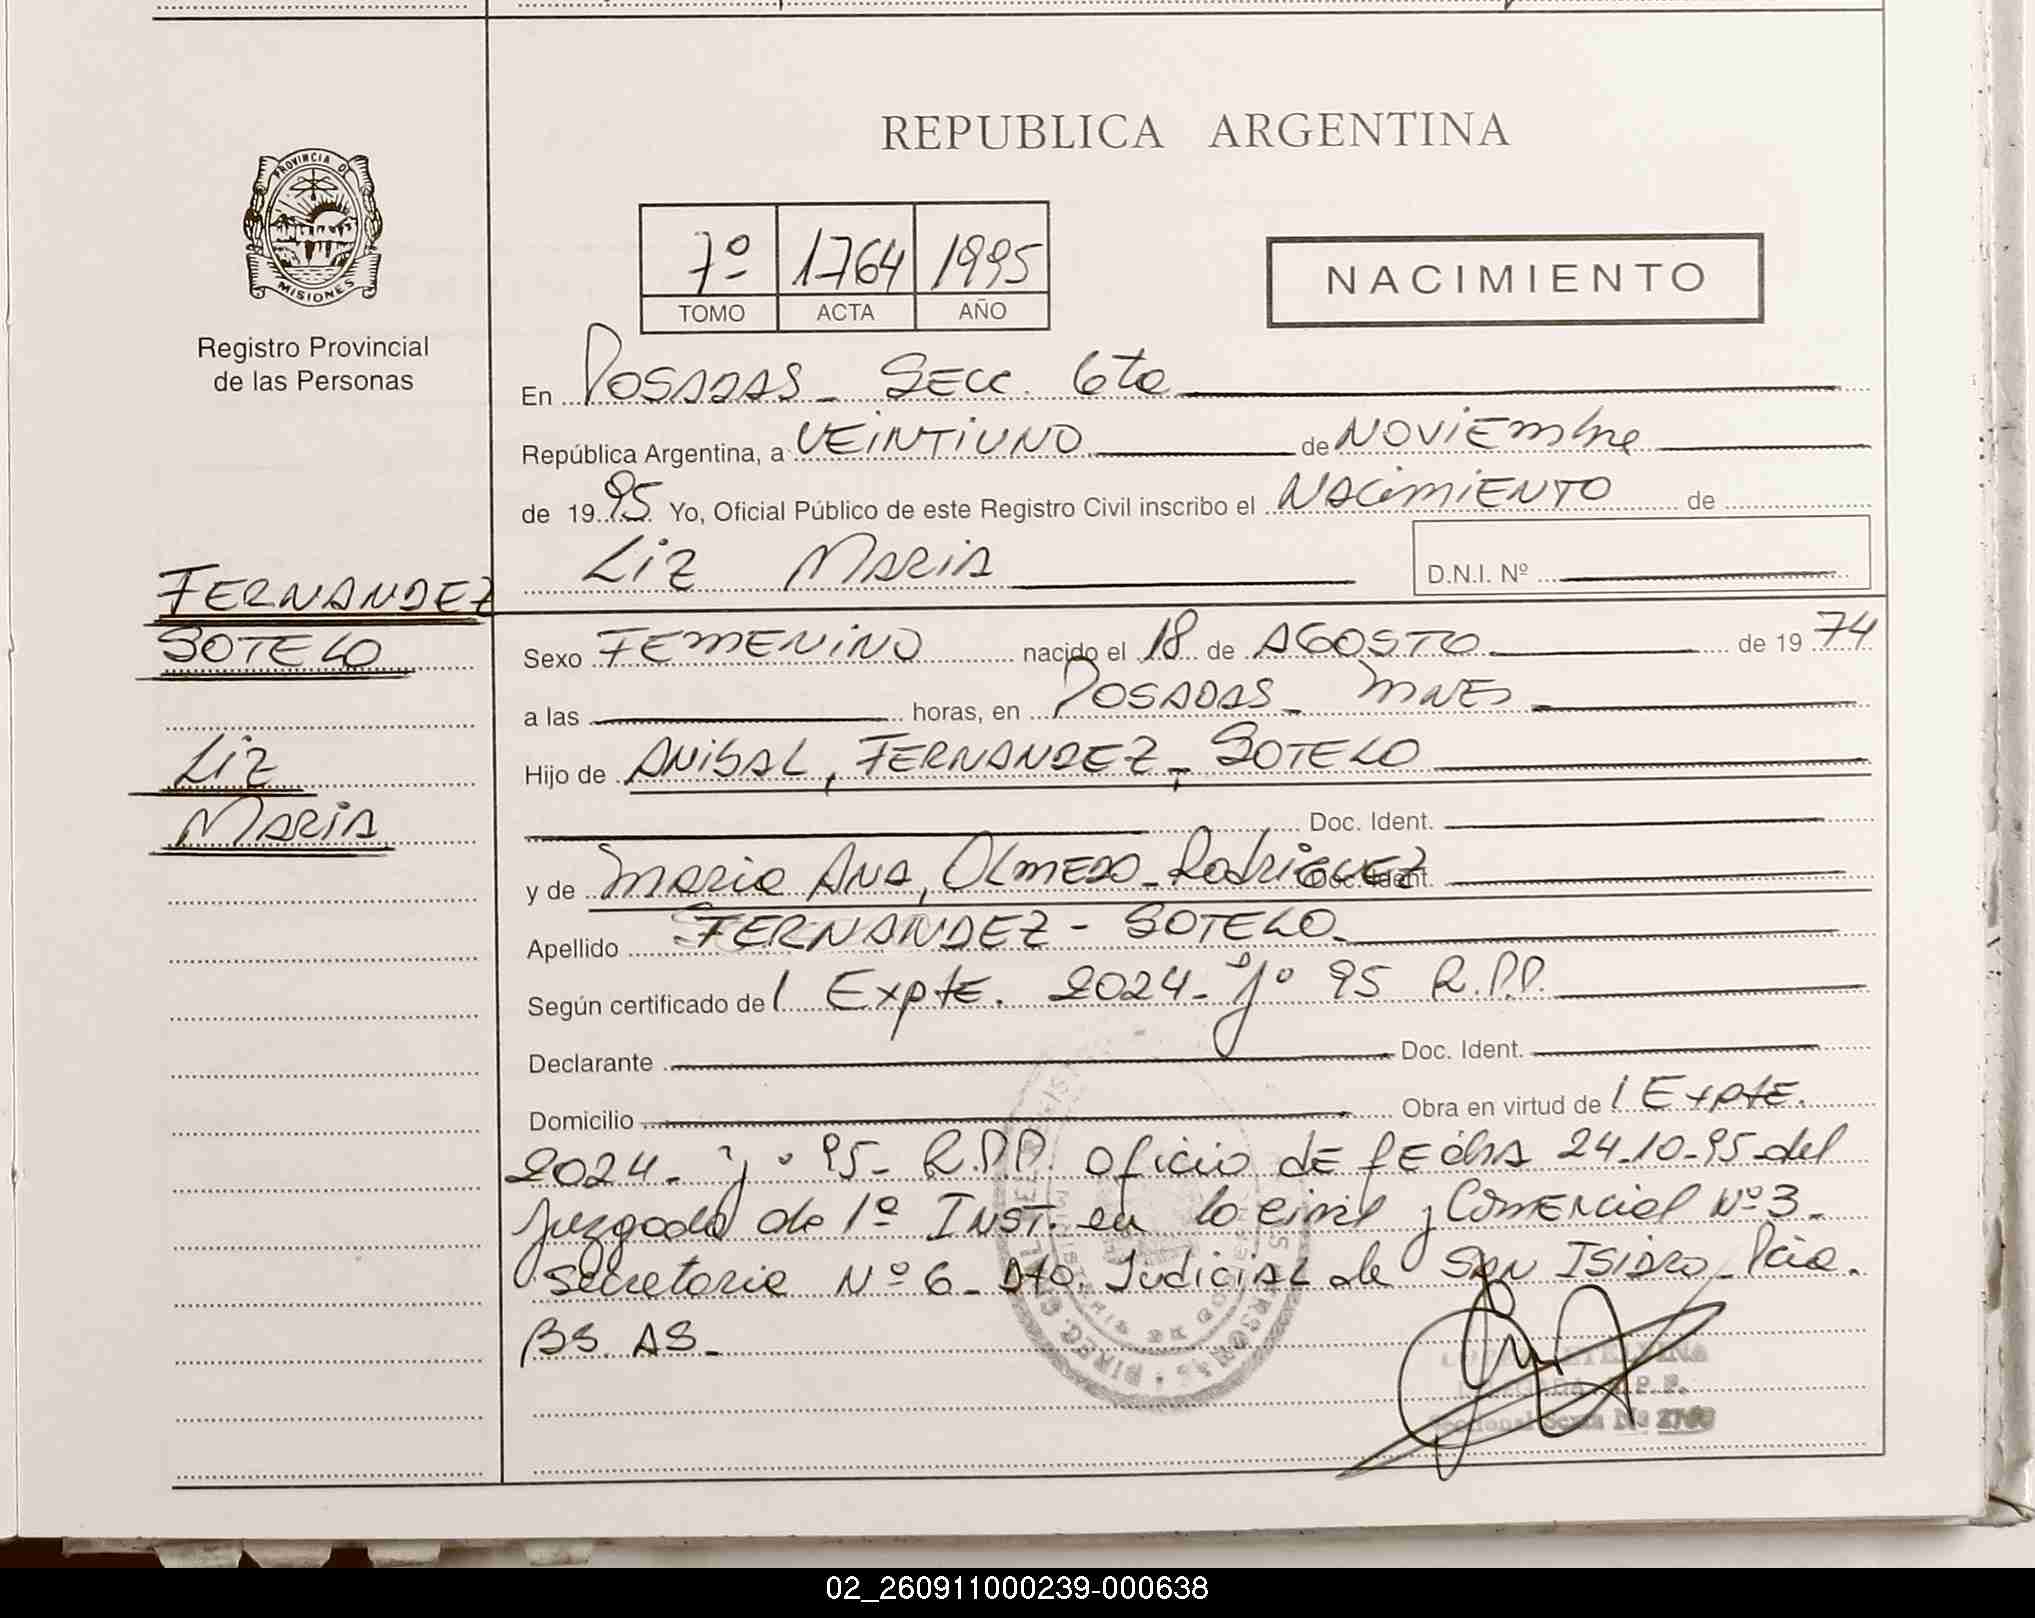 REPUBLICA ARGENTINA
PROVINCIA DE
MISIONES
Registro Provincial
de las Personas
7º 1764 1995
TOMO ACTA AÑO
NACIMIENTO
En POSADAS - SECC. 6ta
República Argentina, a VEINTIUNO de NOVIEmbre
de 1995 Yo, Oficial Público de este Registro Civil inscribo el NACimIENTO de
Liz MARIA
D.N.I. Nº
FERNANDEZ
SOTELO
Liz
MARIA
Sexo FEMENINO nacido el 18 de AGOSTO de 19 74
a las horas, en POSADAS - MNES
Hijo de ANIBAL, FERNANDEZ - SOTELO
Doc. Ident.
y de Maria ANA, OLMEDO - RodriGUEZ Doc. Ident.
Apellido FERNANDEZ - SOTELO
Según certificado de l Expte. 2024 - Jº 95 R.P.P.
Declarante Doc. Ident.
Domicilio Obra en virtud de l Expte.
2024 - Jº 95 - R.P.P. oficio de fecha 24-10-95 del
juzgado de 1º INST. en lo civil y COMERcial Nº 3 -
Secretaria Nº 6 - Dto. Judicial de SAN ISIDRO - Pcia.
BS. AS -
Seccional Sexta
02_260911000239-000638